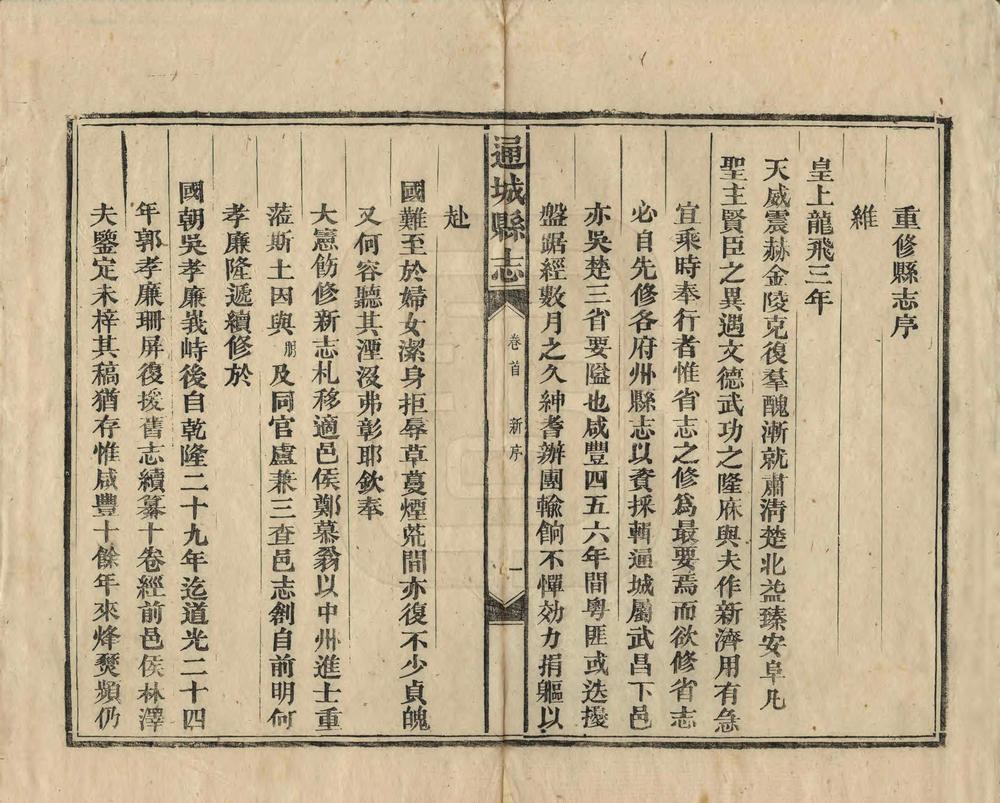 重修縣志序
維
皇上龍飛三年
天威震赫金陵克復羣醜漸就肅清楚北益臻安阜凡
聖主賢臣之異遇文德武功之隆庥與夫作新濟用有急
宜乘時奉行者惟省志之修爲最要焉而欲修省志
必自先修各府州縣志以資採輯通城屬武昌下邑
亦吳楚三省要隘也咸豐四五六年間粵匪或迭擾
盤踞經數月之久紳耆辦團輸餉不憚効力捐軀以
通城縣志
卷首
新序
一
赴
國難至於婦女潔身拒辱草蔓煙荒間亦復不少貞魄
又何容聽其湮沒弗彰耶欽奉
大憲飭修新志札移適邑侯鄭慕翁以中州進士重
蒞斯土因與朋及同官盧兼三查邑志創自前明何
孝廉隆遞續修於
國朝吳孝廉峩峙後自乾隆二十九年迄道光二十四
年郭孝廉珊屏復援舊志續纂十卷經前邑侯林澤
夫鑒定未梓其稿猶存惟咸豐十餘年來烽燹頻仍